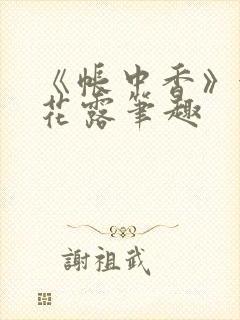 《帳中香》
花露筆趣
謝祖武